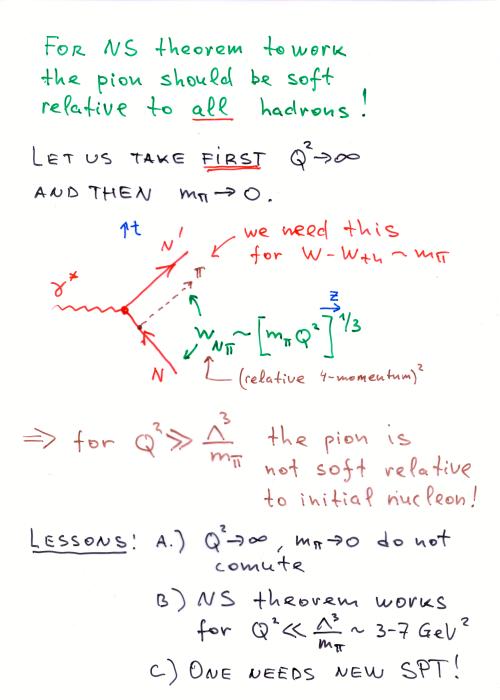 FOR NS theorem to work
the pion should be soft
relative to all hadrons!
LET US TAKE FIRST Q²→∞
AND THEN mπ→0.
↑t
N'
we need this
for W-Wth ~ mπ
π
γ*
z
W_Nπ ~ [mπ Q²]^1/3
N
(relative 4-momentum)²
⇒ for Q² ≫ Λ³/mπ the pion is
not soft relative
to initial nucleon!
LESSONS: A.) Q²→∞, mπ→0 do not
comute
B) NS theorem works
for Q² ≪ Λ³/mπ ~ 3-7 GeV²
C) ONE NEEDS NEW SPT!